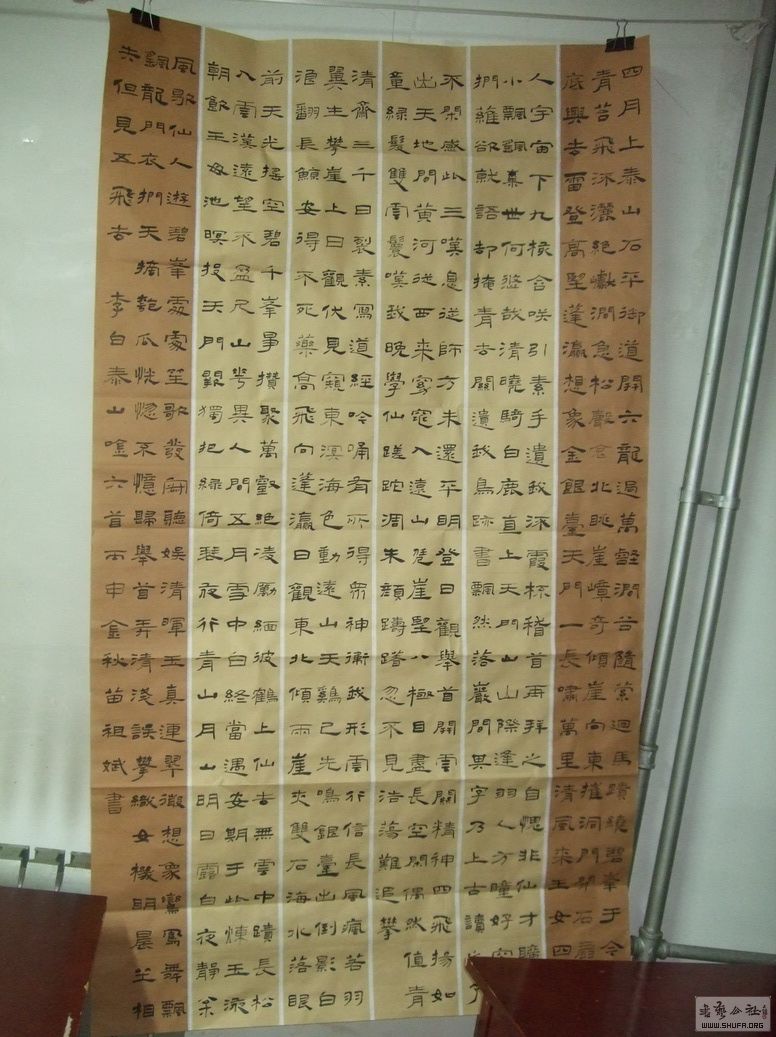 四月上泰山石平御道開六龍過萬壑澗谷隨縈迴馬蹟繞碧峯于今
青苔飛流灑絕巘澗急松聲哀北眺崖嶂奇傾崖向東摧洞門閉石扇
底興云雷登高望蓬瀛想象金銀臺天門一長嘯萬里清風來玉女四
人宇宙下九垓含咲引素手遺我流霞杯稽首再拜之自愧非仙才曠
小飄颻棄世何悠哉清曉騎白鹿直上天門山山際逢羽人方瞳好容
捫蘿欲就語却掩青云關遺我鳥跡書飄然落巖間其字乃上古讀之了
不閑感此三嘆息從師方未還平明登日觀舉首開雲關精神四飛揚如
出天地間黃河從西來窈窕入遠山憑崖望八極目盡長空閑偶然值青
童綠髮雙雲鬟嘆我晚學仙蹉跎凋朱顏躊躇忽不見浩蕩難追攀
清齋三千日裂素寫道經吟誦有所得眾神衛我形雲行信長風颯若羽
翼生攀崖上日觀伏見窺東溟海色動遠山天雞已先鳴銀臺出倒影白
浪翻長鯨安得不死藥高飛向蓬瀛日觀東北傾兩崖夾雙石海水落眼
前天光搖空碧千峯爭攢聚萬壑絕凌厲緬彼鶴上仙去無雲中蹟長松
入雲漢遠望不盈尺山花異人間五月雪中白終當遇安期于此煉玉液
朝飲王母池暝投天門關獨抱綠綺琴夜行青山月山明日露白夜靜松
風歇仙人遊碧峯處處笙歌發寂聽娛清暉玉真連翠微想象鸞鳳舞飄
颻龍虎衣捫天摘匏瓜恍惚不憶歸舉首弄清淺誤攀織女機明晨坐相
失但見五飛云 李白泰山唫六首丙申金秋苗祖斌書
书艺公社
WWW.SHUFA.ORG